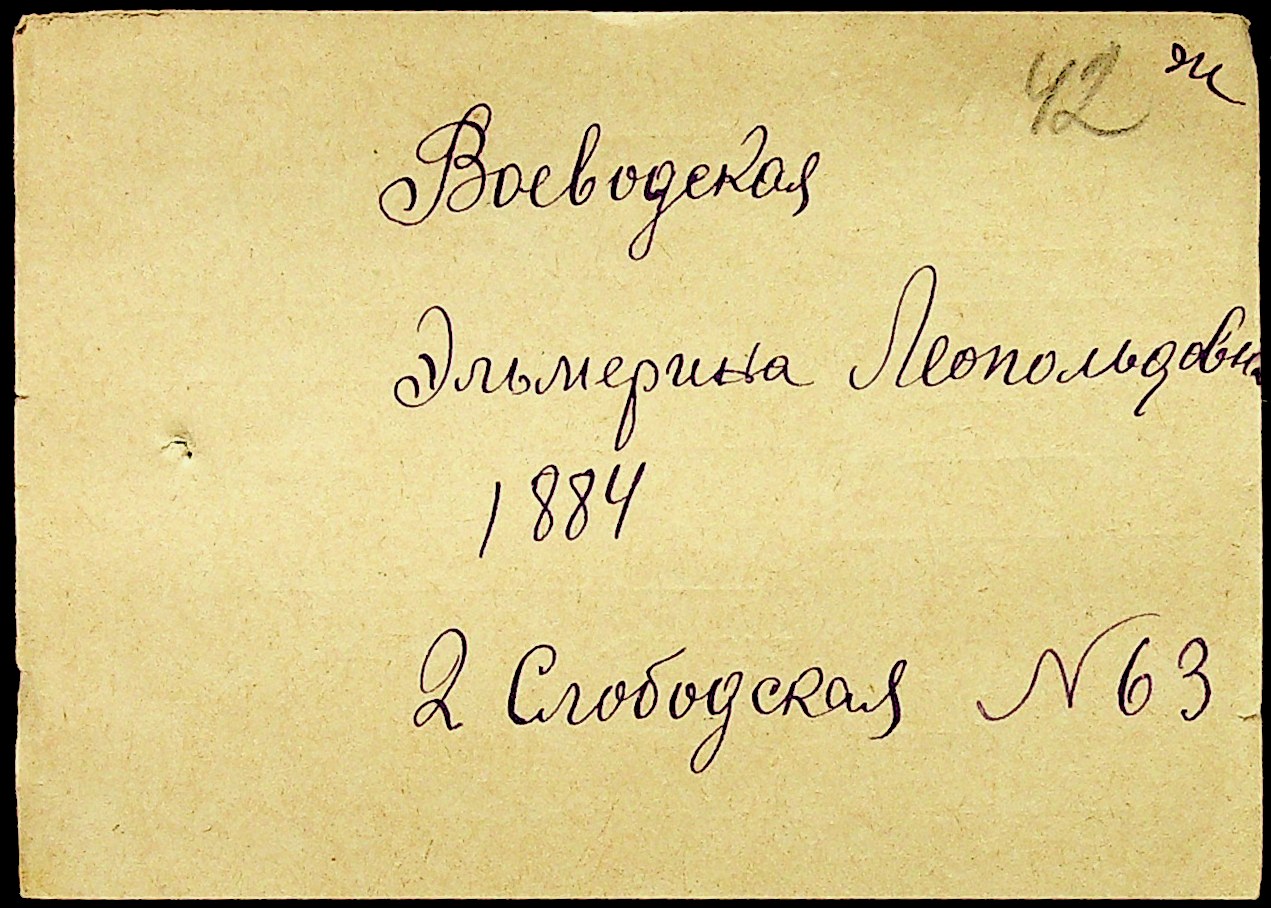 42 ж
Воеводская
Эльмерина Леопольдовна
1884
2 Слободская N 63